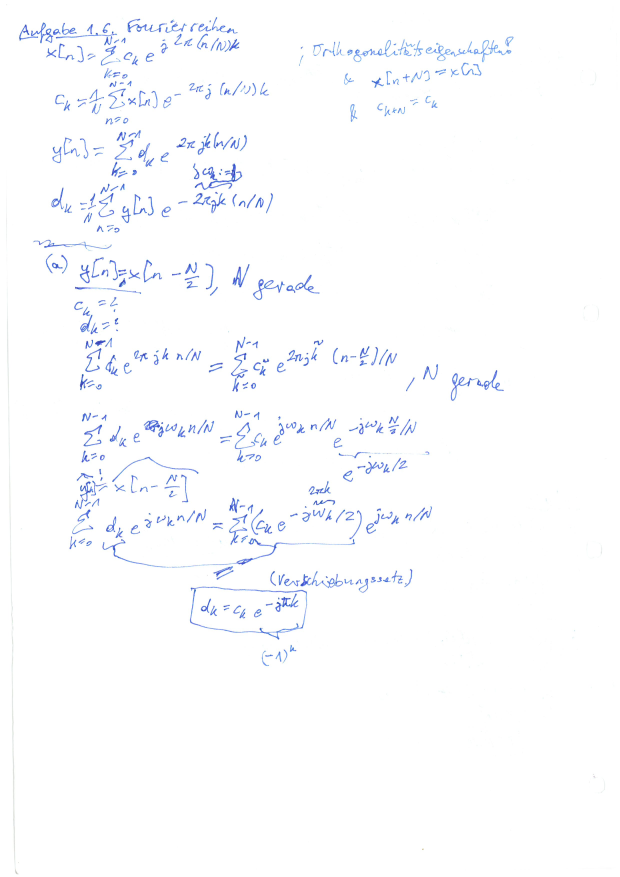 Aufgabe 1.6. Fourierreihen
x[n] = ∑_{k=0}^{N-1} c_k e^{j 2π (n/N) k} ; Orthogonalitätseigenschaften?
& x[n+N] = x[n]
c_k = 1/N ∑_{n=0}^{N-1} x[n] e^{-2πj (n/N) k}
& c_{k+N} = c_k
y[n] = ∑_{k=0}^{N-1} d_k e^{2πjk(n/N)}
d_k = 1/N ∑_{n=0}^{N-1} y[n] e^{-2πjk(n/N)}
(a) y[n] = x[n - N/2], N gerade
c_k = ?
d_k = ?
∑_{k=0}^{N-1} d_k e^{2πjk n/N} = ∑_{k̃=0}^{N-1} c_k̃ e^{2πjk̃ (n - N/2)/N}, N gerade
∑_{k=0}^{N-1} d_k e^{jω_k n/N} = ∑_{k=0}^{N-1} c_k e^{jω_k n/N} e^{-jω_k N/2 /N}
e^{-jω_k/2}
y[n] != x[n - N/2]
2πk
∑_{k=0}^{N-1} d_k e^{jω_k n/N} = ∑_{k=0}^{N-1} (c_k e^{-jω_k/2}) e^{jω_k n/N}
(Verschiebungssatz)
d_k = c_k e^{-jπk}
(-1)^k